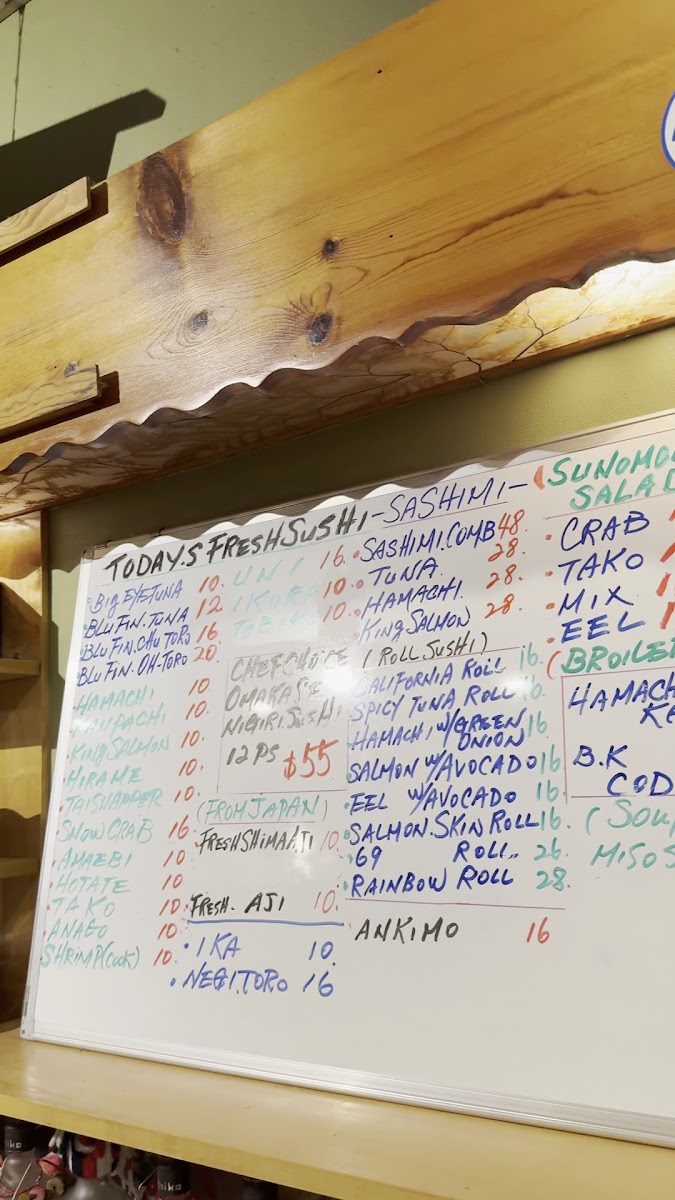 TODAY.S FRESH SUSHI
BIG EYE TUNA 10.
BLU FIN.TUNA 12.
BLU FIN.CHU TORO 16.
BLU FIN.OH-TORO 20.
HAMACHI 10.
KANPACHI 10.
KING SALMON 10.
HIRAME 10.
TAI SNAPPER 10.
SNOW CRAB 16.
AMAEBI 10.
HOTATE 10
TAKO 10.
ANAGO 10.
SHRIMP(COOK) 10.
UNI 16.
IKURA 10.
TOBIKO 10.
CHEF CHOICE
OMAKASE
NIGIRI.SUSHI
12 PS $55
(FROM JAPAN)
FRESH SHIMA AJI 10.
FRESH. AJI 10.
IKA 10.
NEGI.TORO 16
-SASHIMI-
SASHIMI.COMB 48.
TUNA 28.
HAMACHI 28.
KING SALMON 28.
(ROLL SUSHI)
CALIFORNIA ROLL 16.
SPICY TUNA ROLL 16.
HAMACHI W/GREEN
ONION 16
SALMON W/AVOCADO 16
EEL W/AVOCADO 16.
SALMON.SKIN ROLL 16.
69 ROLL 26.
RAINBOW ROLL 28.
ANKIMO 16
(SUNOMO
SALAD
CRAB
TAKO
MIX
EEL
(BROILE
HAMACH
B.K
COD
(SOU
MISO S